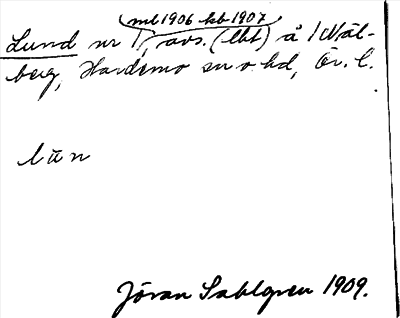 ml 1906 kb 1907
Lund nr 1, avs. (lht) å 1 Mål-
berg, Hardemo sn o hd, Ör. l.
lun
Jöran Sahlgren 1909.